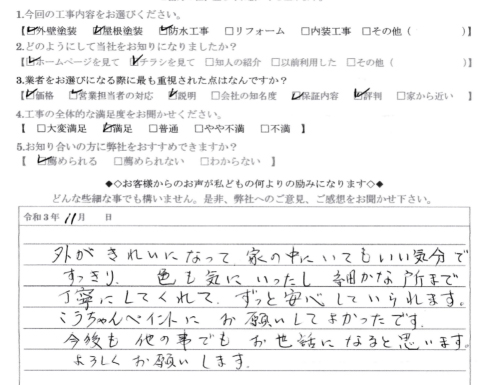 1.今回の工事内容をお選びください。
【☑外壁塗装 ☑屋根塗装 ☑防水工事 □リフォーム □内装工事 □その他( )】
2.どのようにして当社をお知りになりましたか?
【☑ホームページを見て ☑チラシを見て □知人の紹介 □以前利用した □その他( )】
3.業者をお選びになる際に最も重視された点はなんですか?
【☑価格 ☑営業担当者の対応 ☑説明 □会社の知名度 ☑保証内容 ☑評判 □家から近い 】
4.工事の全体的な満足度をお聞かせください。
【 □大変満足 ☑満足 □普通 □やや不満 □不満 】
5.お知り合いの方に弊社をおすすめできますか?
【 ☑薦められる □薦められない □わからない 】
◆◇お客様からのお声が私どもの何よりの励みになります◇◆
どんな些細な事でも構いません。是非、弊社へのご意見、ご感想をお聞かせ下さい。
令和3年 11月 日
外がきれいになって、家の中にいてもいい気分で
すっきり、色も気にいったし 細かな所まで
丁寧にしてくれて、ずっと安心していられます。
こうちゃんペイントに お願いしてよかったです。
今後も 他の事でも お世話になると思います。
よろしくお願いします。